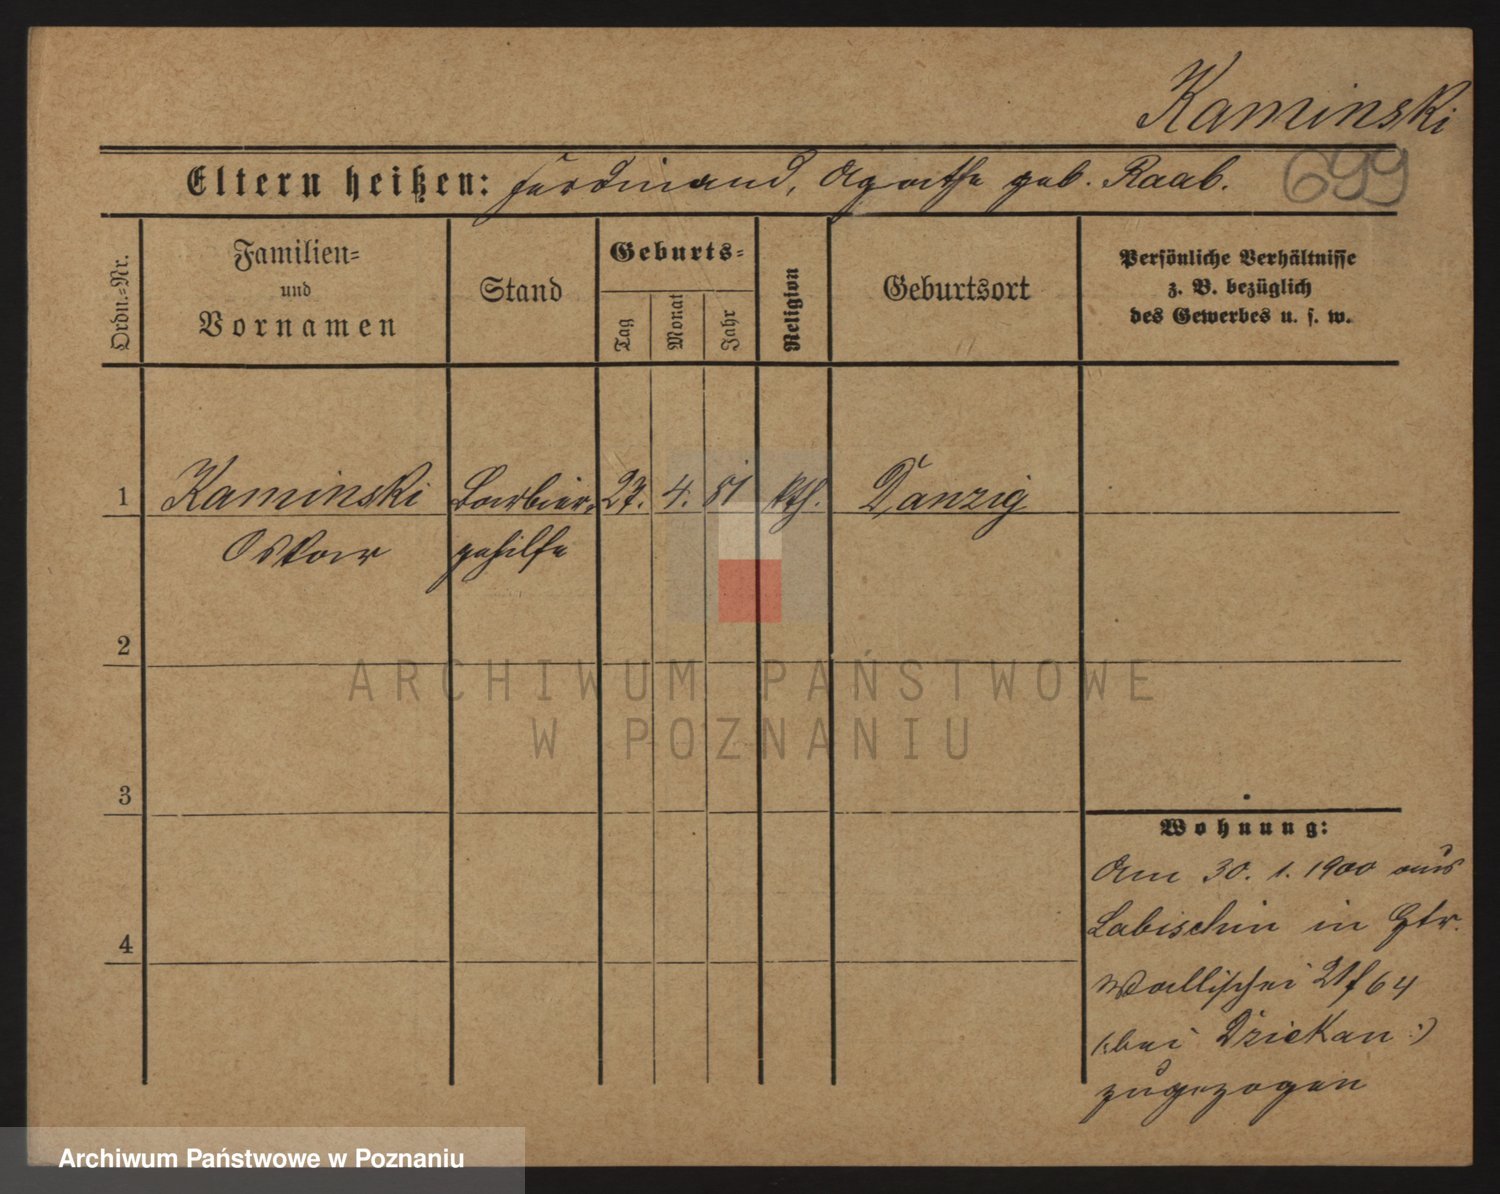 Kaminski
699
Eltern heißen: Ferdinand, Agathe geb. Raab.
Ordn.-Nr.
Familien-
und
Vornamen
Stand
Geburts-
Tag
Monat
Jahr
Religion
Geburtsort
Persönliche Verhältnisse
z. B. bezüglich
des Gewerbes u. s. w.
1 Kaminski Barbier- 27. 4. 81 kth. Danzig
Oskar gehilfe
2
ARCHIWUM PAŃSTWOWE
W POZNANIU
3
Wohnung:
Am 30. 1. 1900 aus
Labischin in
4
Wallischei 64
(: bei Dziekan :)
zugezogen
Archiwum Państwowe w Poznaniu